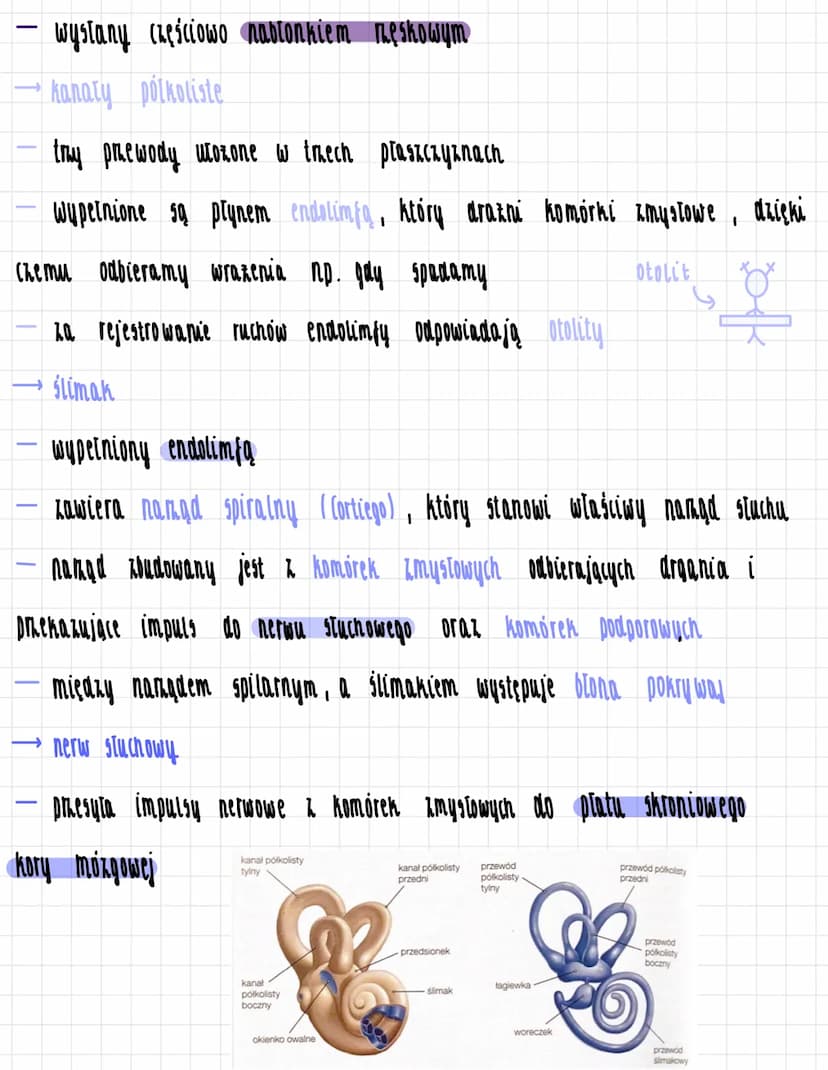 – wysłany częściowo nabłonkiem rzęskowym
→ kanały półkoliste
– trzy przewody ułożone w trzech płaszczyznach
– wypełnione są płynem endolimfą, który drażni komórki zmysłowe, dzięki
czemu odbieramy wrażenia np. gdy spadamy
otolit
– za rejestrowanie ruchów endolimfy odpowiadają otolity
→ ślimak
– wypełniony endolimfą
– zawiera narząd spiralny (Cortiego), który stanowi właściwy narząd słuchu
– narząd zbudowany jest z komórek zmysłowych odbierających drgania i
przekazujące impuls do nerwu słuchowego oraz komórek podporowych
– między narządem spilarnym, a ślimakiem występuje błona pokrywaj
→ nerw słuchowy
– przesyła impulsy nerwowe z komórek zmysłowych do płatu skroniowego
kory mózgowej
kanał półkolisty
tylny
kanał półkolisty
przedni
przedsionek
ślimak
kanał
półkolisty
boczny
okienko owalne
przewód
półkolisty
tylny
przewód półkolisty
przedni
przewód
półkolisty
boczny
łagiewka
woreczek
przewód
ślimakowy